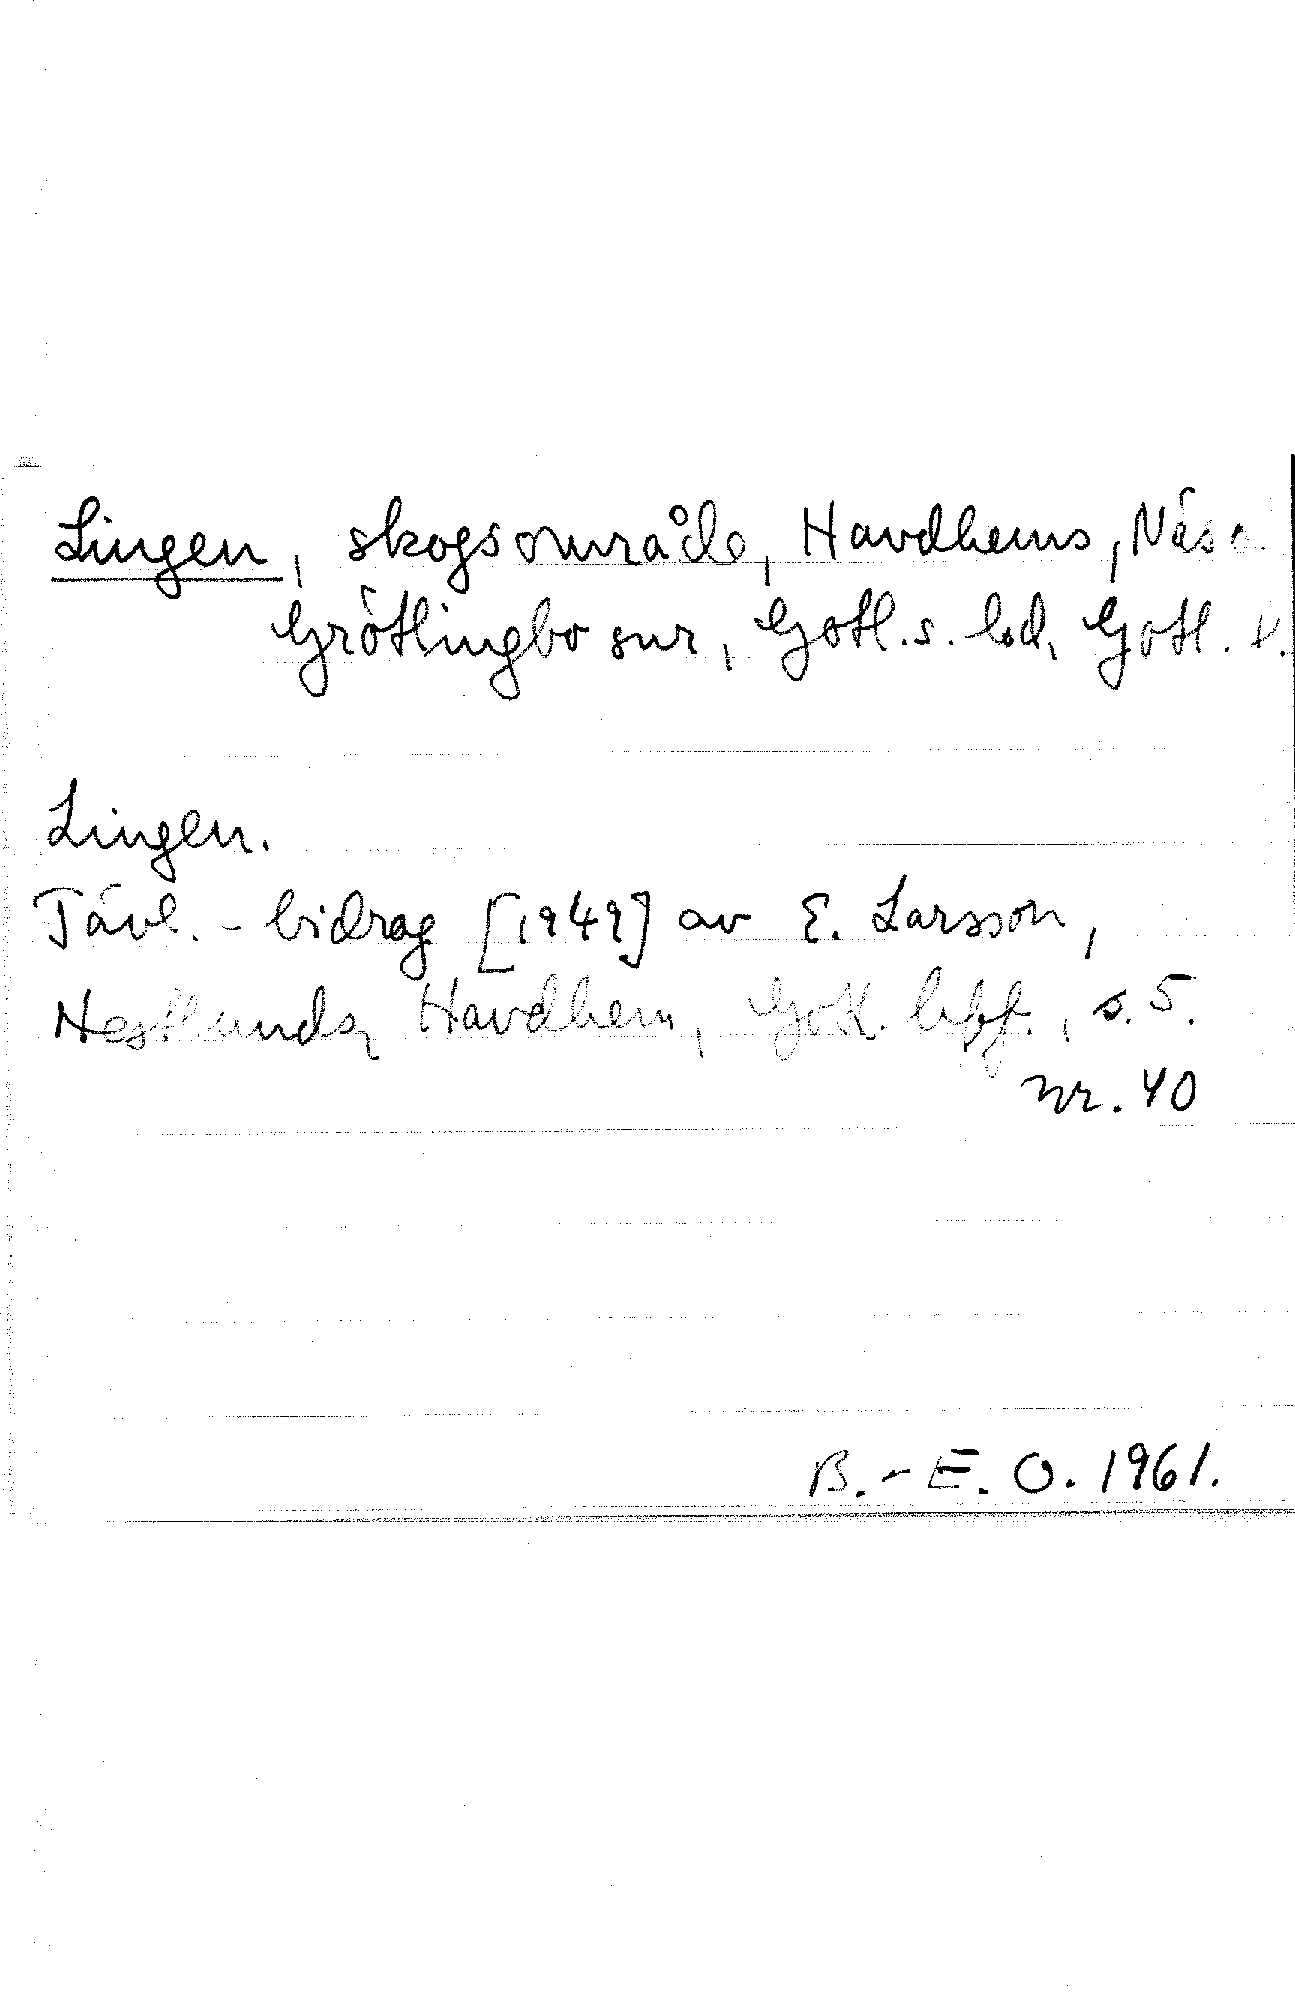 Lingen, skogsområde, Havdhems, Näs o.
Grötlingbo snr, Gotl. s. hd, Gotl. l.
Lingen.
Tävl.-bidrag [1949] av E. Larsson,
Nestlunds, Havdhem, Gotl. , s. 5.
nr. 40
B.-E. O. 1961.